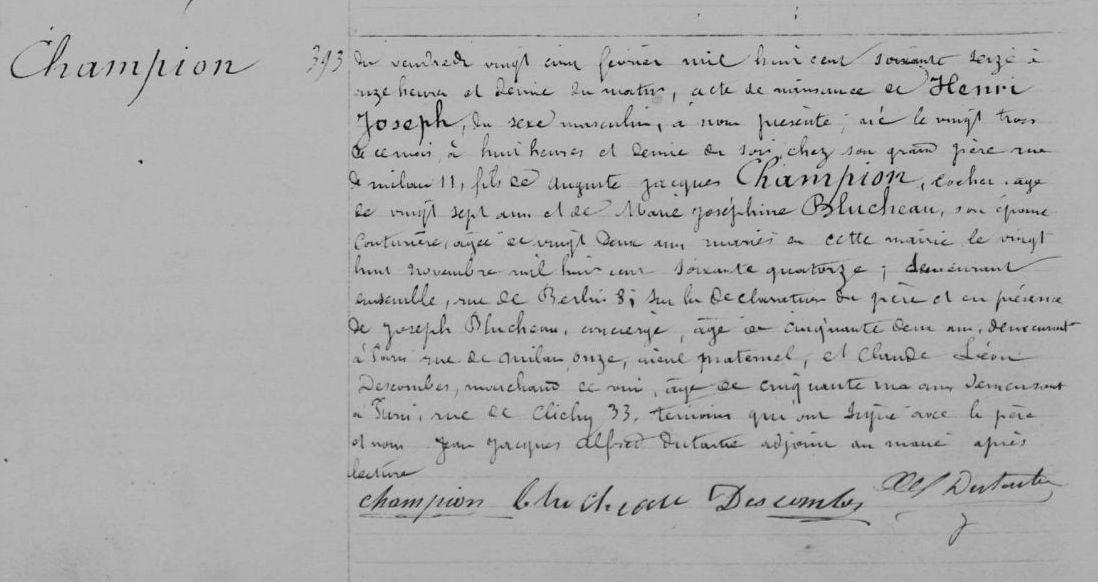 Champion
393
du vendredi vingt cinq février mil huit cent soixante seize à
onze heures et demie du matin, acte de naissance de Henri
Joseph, du sexe masculin, à nous présenté ; né le vingt trois
de ce mois, à huit heures et demie du soir, chez son grand père rue
de milan 11, fils de Auguste Jacques Champion, cocher, âgé
de vingt sept ans et de Marie Joséphine Blucheau, son épouse
couturière, âgée de vingt deux ans mariés en cette mairie le vingt
huit novembre mil huit cent soixante quatorze ; demeurant
ensemble, rue de Berlin 8 ; sur la declaration du père et en présence
de Joseph Blucheau, concierge, âgé de cinquante deux ans, demeurant
à Paris rue de milan onze, aieul maternel, et Claude Léon
Descombes, marchand de vin, âgé de cinquante ans demeurant
à Paris, rue de Clichy 33, temoins qui ont signé avec le père
et nous Jean Jacques Alfred Dutartre adjoint au maire après
lecture
champion Blucheau Descombes Alf Dutartre